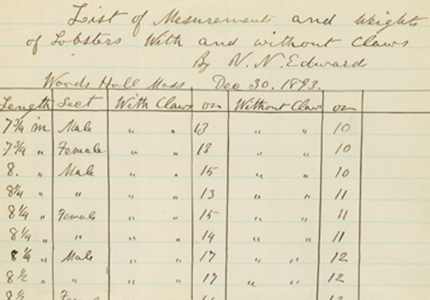 List of Mesurement and Weights
of Lobsters With and without Claws
By V. N. Edward
Woods Holl Mass. Dec 30. 1893.
Length Sect With Claws oz Without Claws oz
7¾ in Male " " 13 " " 10
7¾ " Female " " 13 " " 10
8. " Male " " 15 " " 10
8¼ " " " " 13 " " 11
8¼ " Female " " 15 " " 11
8¼ " " " " 14 " " 11
8¼ " Male " " 17 " " 12
8½ " " " " 17 " " 12